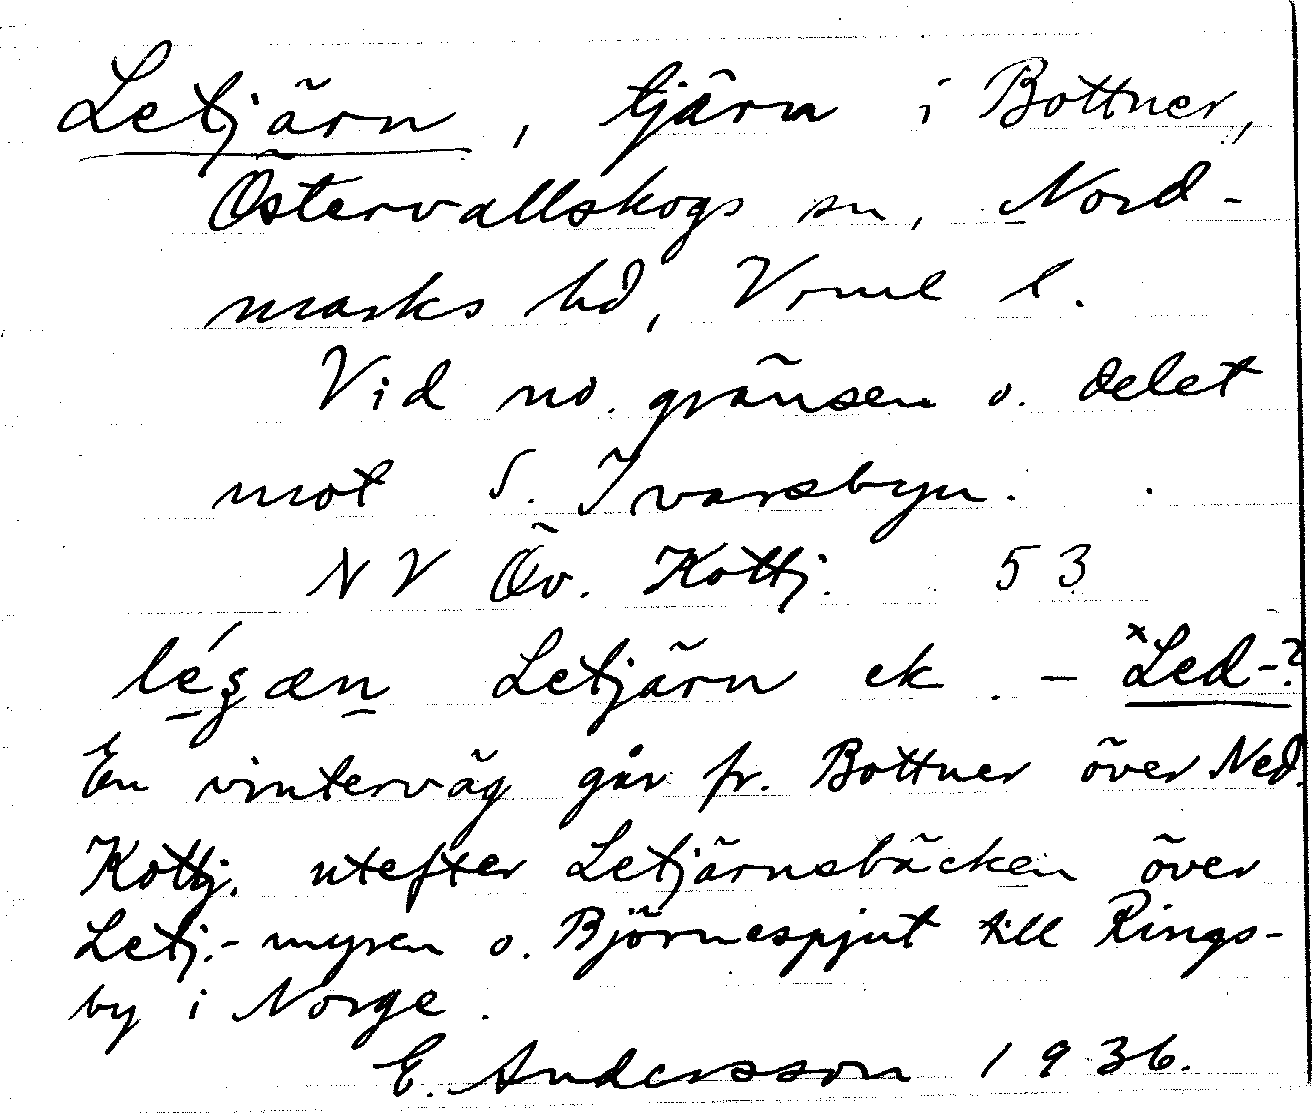 Letjärn, tjärn i Bottner,
Östervallskogs sn, Nord-
marks hd, Vrml l.
Vid nö. gränsen o. delet
mot S. Ivarsbyn.
NV Öv. Kottj. 53
Letjärn ek. – *Led-?
En vinterväg går fr. Bottner över Ned.
Kottj. utefter Letjärnsbäcken över
Letj.-myren o. Björnespjut till Rings-
by i Norge.
E. Andersson 1936.